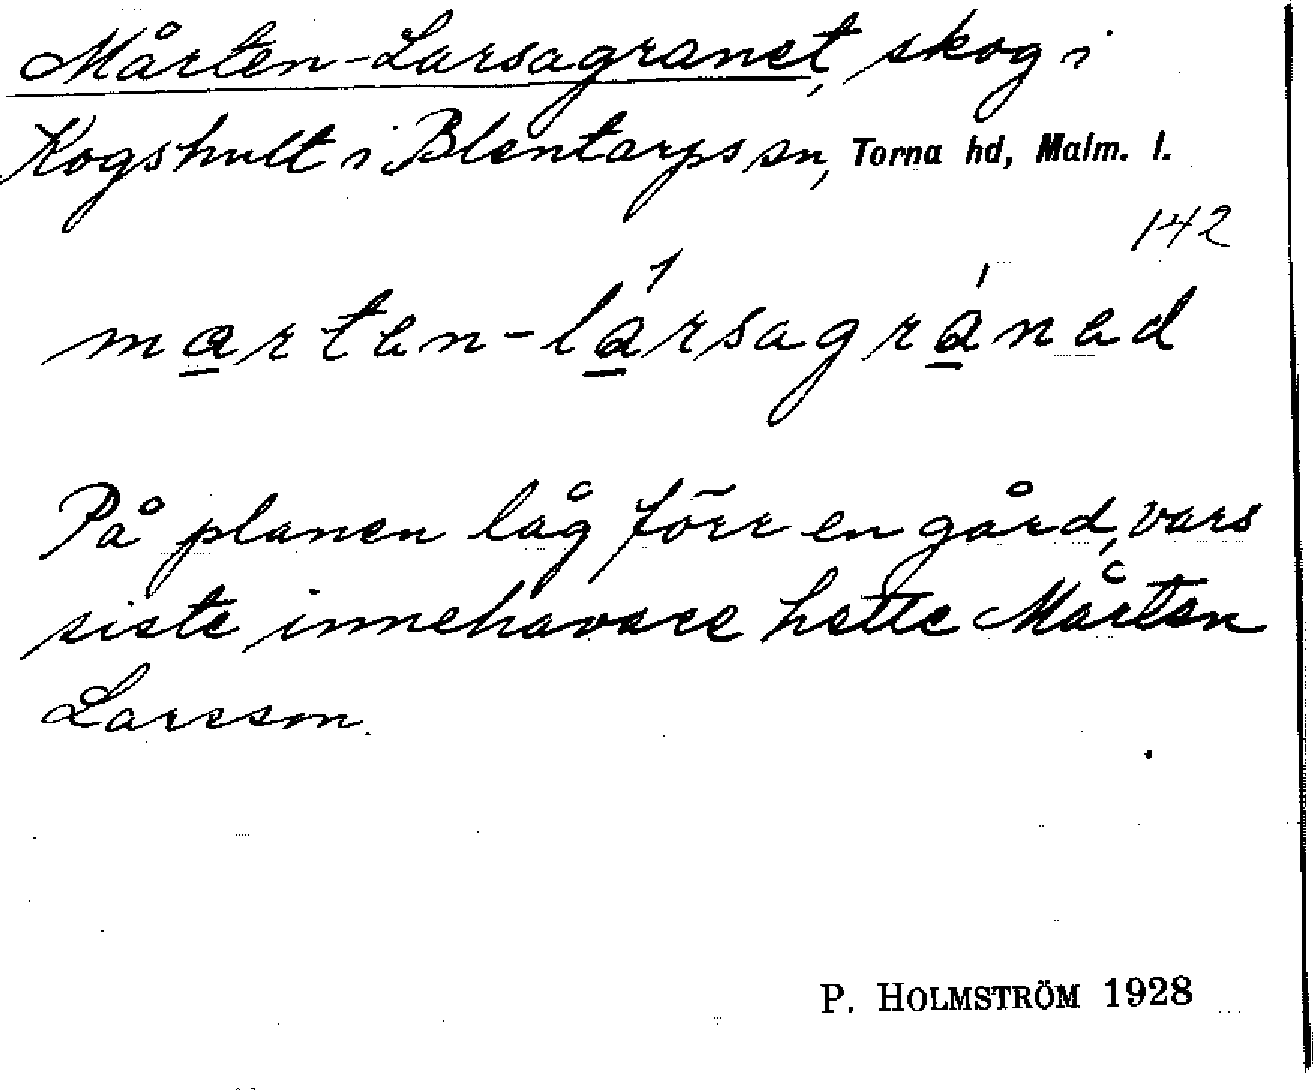 Mårten-Larsagranet, skog i
Kogshult i Blentarps sn, Torna hd, Malm. l.
142
marten-lársagránad
På planen låg förr en gård, vars
siste innehavare hette Mårten
Larsson.
P. HOLMSTRÖM 1928